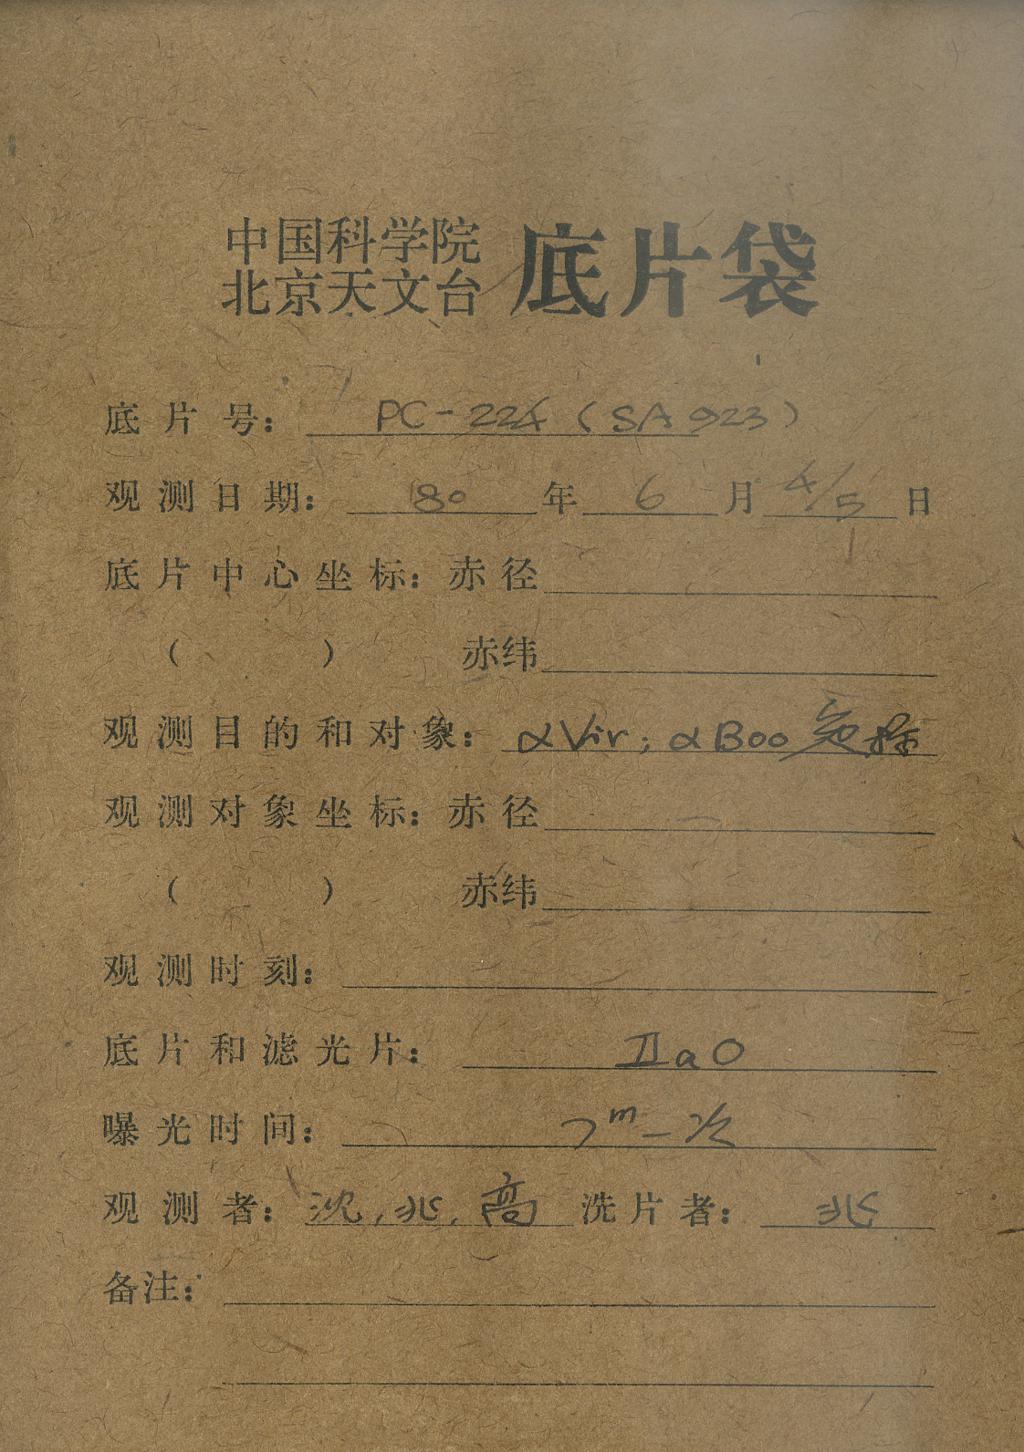 中国科学院
北京天文台 底片袋
底片号： PC-224 (SA 923)
观测日期： 80 年 6 月 4/5 日
底片中心坐标：赤径
（ ） 赤纬
观测目的和对象： αVir; αBoo 定标
观测对象坐标：赤径
（ ） 赤纬
观测时刻：
底片和滤光片： ⅡaO
曝光时间： m一次
观测者： 沈,兆,高 洗片者： 兆
备注：